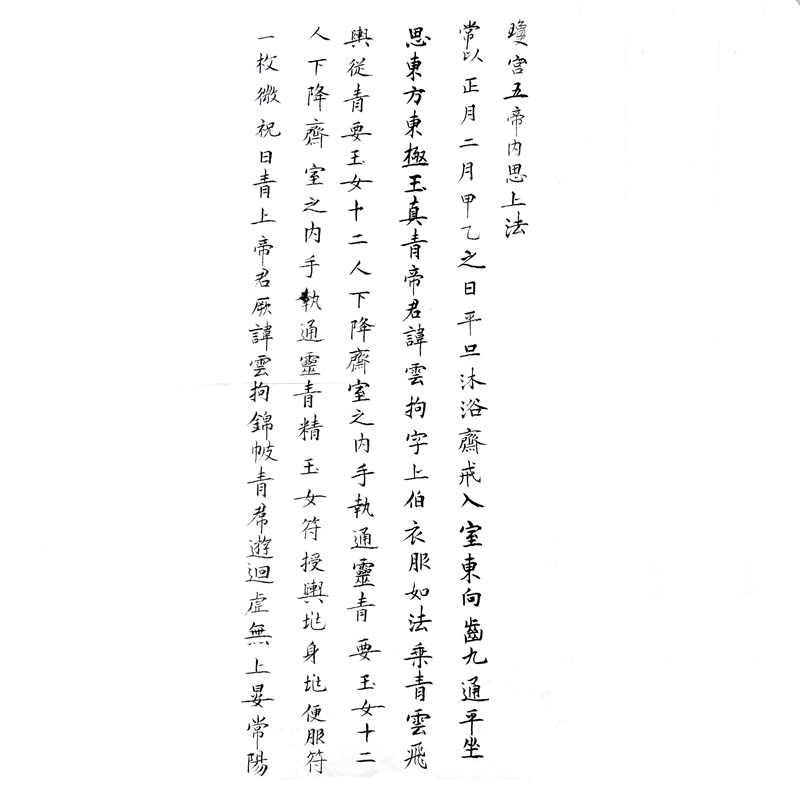 瓊宮五帝內思上法
常以正月二月甲乙之日平旦沐浴齋戒入室東向齒九通平坐
思東方東極玉真青帝君諱雲拘字上伯衣服如法乘青雲飛
輿從青要玉女十二人下降齋室之內手執通靈青要玉女十二
人下降齋室之內手執通靈青精玉女符授與地身地便服符
一枚微祝曰青上帝君厥諱雲拘錦帔青帬遊迴虛無上晏常陽